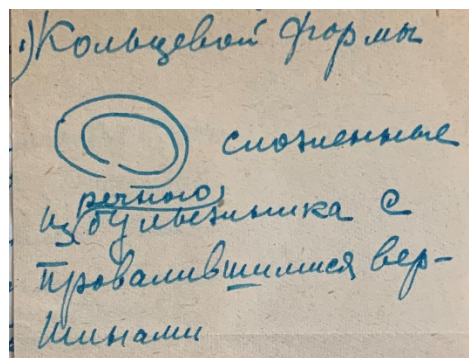 1) Кольцевой формы
сложенные
речного
из булыжника с
провалившимися вер-
шинами